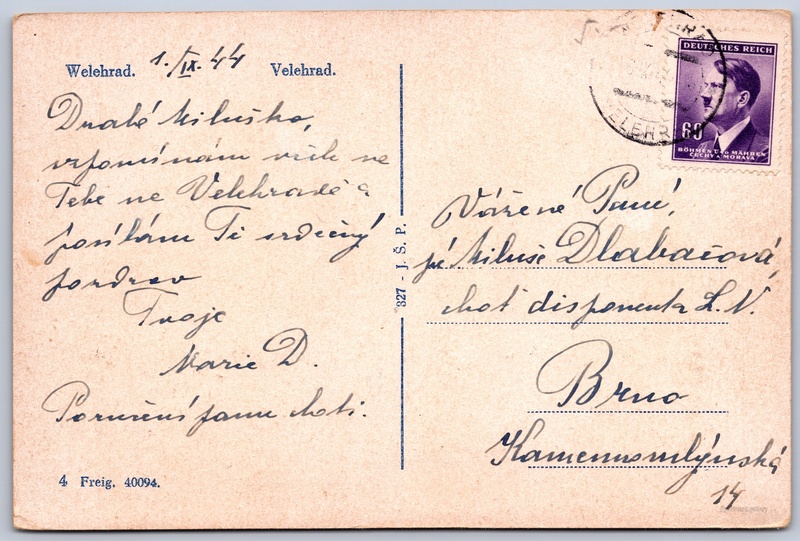 Welehrad. 1./IX. 44 Velehrad.
Drahá Miluško,
vzpomínám ne
Tebe ne Velehradě a
posílám Ti srdečný
pozdrav
Tvoje
Marie D.
Poručení panu choti.
4 Freig. 40094.
327 - J. Š. P.
DEUTSCHES REICH
60
BÖHMEN U. MÄHREN
ČECHY A MORAVA
VELEHRAD
Vážené Paní,
pí Miluše Dlabačová,
choť disponenta L. N.
Brno
Kamennomlýnská
14